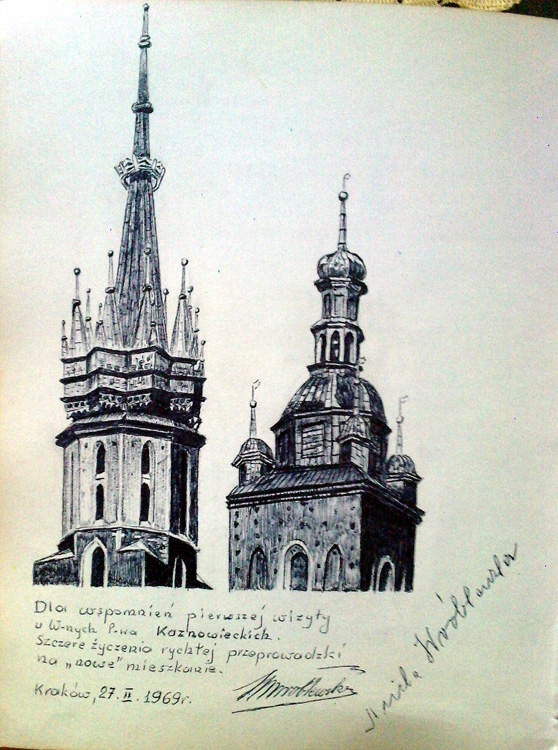 Dla wspomnień pierwszej wizyty
u W-nych P-wa Kaznowieckich.
Szczere życzenia rychłej przeprowadzki
na „nowe” mieszkanie.
Kraków, 27. II. 1969r.
Wróblewska